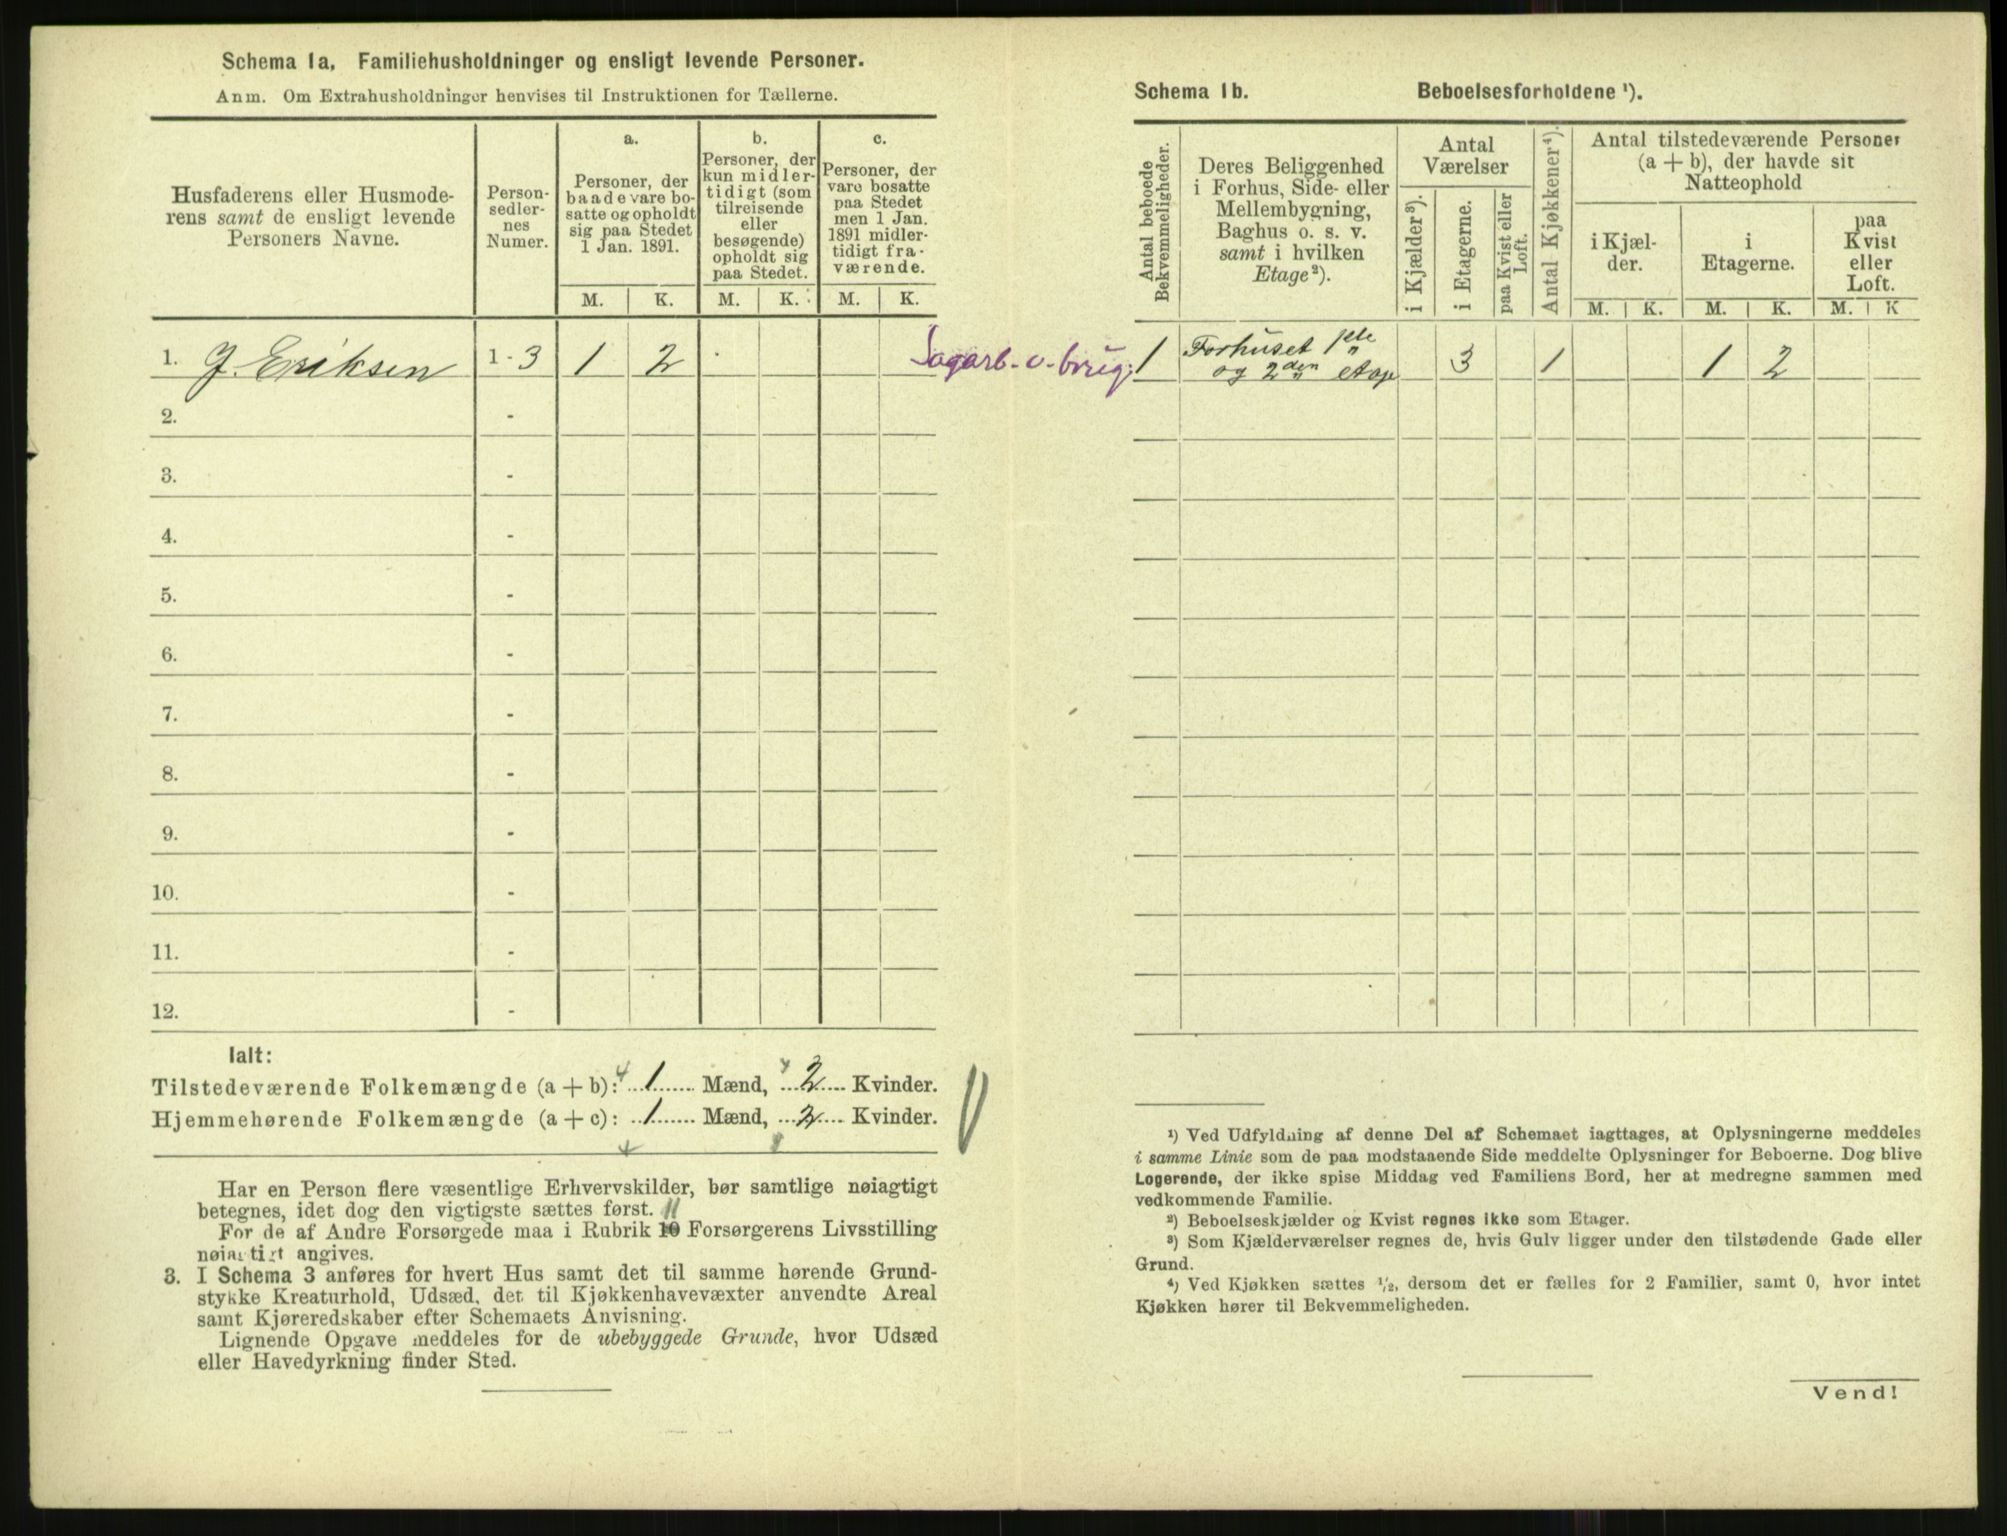 Schema 1a. Familiehusholdninger og ensligt levende Personer.
Anm. Om Extrahusholdninger henvises til Instruktionen for Tællerne.
Husfaderens eller Husmode-
rens samt de ensligt levende
Personers Navne.
Person-
sedler-
nes
Numer.
a.
Personer, der
baade vare bo-
satte og opholdt
sig paa Stedet
1 Jan. 1891.
M. K.
b.
Personer, der
kun midler-
tidigt (som
tilreisende
eller
besøgende)
opholdt sig
paa Stedet.
M. K.
c.
Personer, der
vare bosatte
paa Stedet
men 1 Jan.
1891 midler-
tidigt fra-
værende.
M. K.
1. J. Eriksen 1 - 3 1 2
2. -
3. -
4. -
5. -
6. -
7. -
8. -
9. -
10. -
11. -
12. -
Ialt:
Tilstedeværende Folkemængde (a + b): 4 1 Mænd, 2 Kvinder.
Hjemmehørende Folkemængde (a + c): 1 Mænd, 2 Kvinder.
Har en Person flere væsentlige Erhvervskilder, bør samtlige nøiagtigt
betegnes, idet dog den vigtigste sættes først. 11
For de af Andre Forsørgede maa i Rubrik 10 Forsørgerens Livsstilling
nøiagtigt angives.
3. I Schema 3 anføres for hvert Hus samt det til samme hørende Grund-
stykke Kreaturhold, Udsæd, det til Kjøkkenhavevæxter anvendte Areal
samt Kjøreredskaber efter Schemaets Anvisning.
Lignende Opgave meddeles for de ubebyggede Grunde, hvor Udsæd
eller Havedyrkning finder Sted.
Schema 1b. Beboelsesforholdene ¹).
Antal beboede
Bekvemmeligheder.
Deres Beliggenhed
i Forhus, Side- eller
Mellembygning,
Baghus o. s. v.
samt i hvilken
Etage ²).
Antal
Værelser
i Kjælder ³).
i Etagerne.
paa Kvist eller
Loft.
Antal Kjøkkener ⁴).
Antal tilstedeværende Personer
(a + b), der havde sit
Natteophold
i Kjæl-
der.
i
Etagerne.
paa
Kvist
eller
Loft.
M. K. M. K. M. K
Sagarb. o. brug. 1 Forhuset 1ste
og 2den etage 3 1 1 2
¹) Ved Udfyldning af denne Del af Schemaet iagttages, at Oplysningerne meddeles
i samme Linie som de paa modstaaende Side meddelte Oplysninger for Beboerne. Dog blive
Logerende, der ikke spise Middag ved Familiens Bord, her at medregne sammen med
vedkommende Familie.
²) Beboelseskjælder og Kvist regnes ikke som Etager.
³) Som Kjælderværelser regnes de, hvis Gulv ligger under den tilstødende Gade eller
Grund.
⁴) Ved Kjøkken sættes ½, dersom det er fælles for 2 Familier, samt 0, hvor intet
Kjøkken hører til Bekvemmeligheden.
Vend!